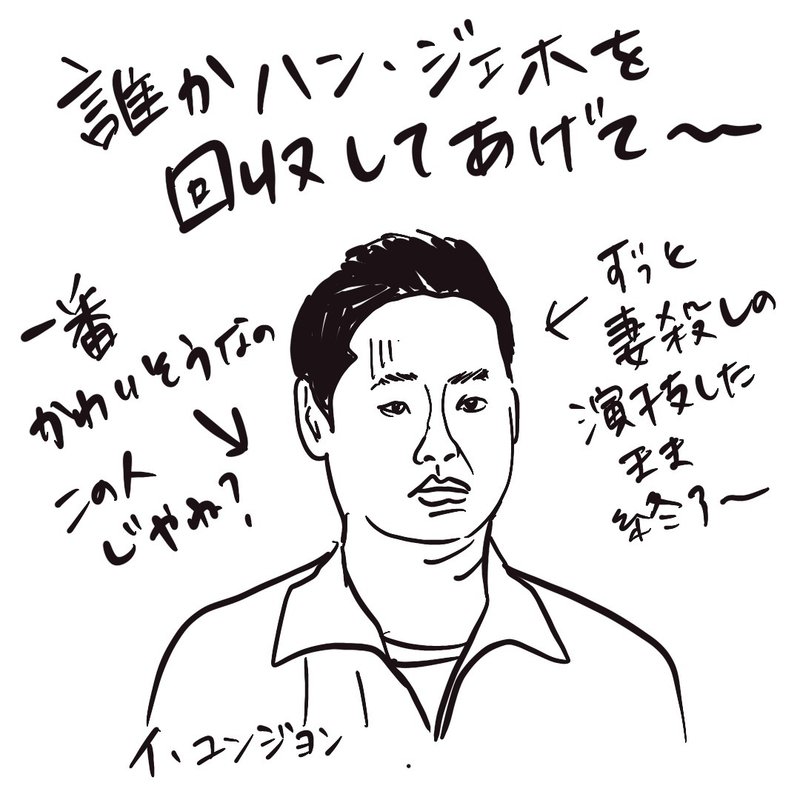 誰かハン・ジェホを
回収してあげて〜
一番
かわいそうなの
この人
じゃね?
ずっと
妻殺しの
演技した
まま
終了〜
イ・ユンジョン